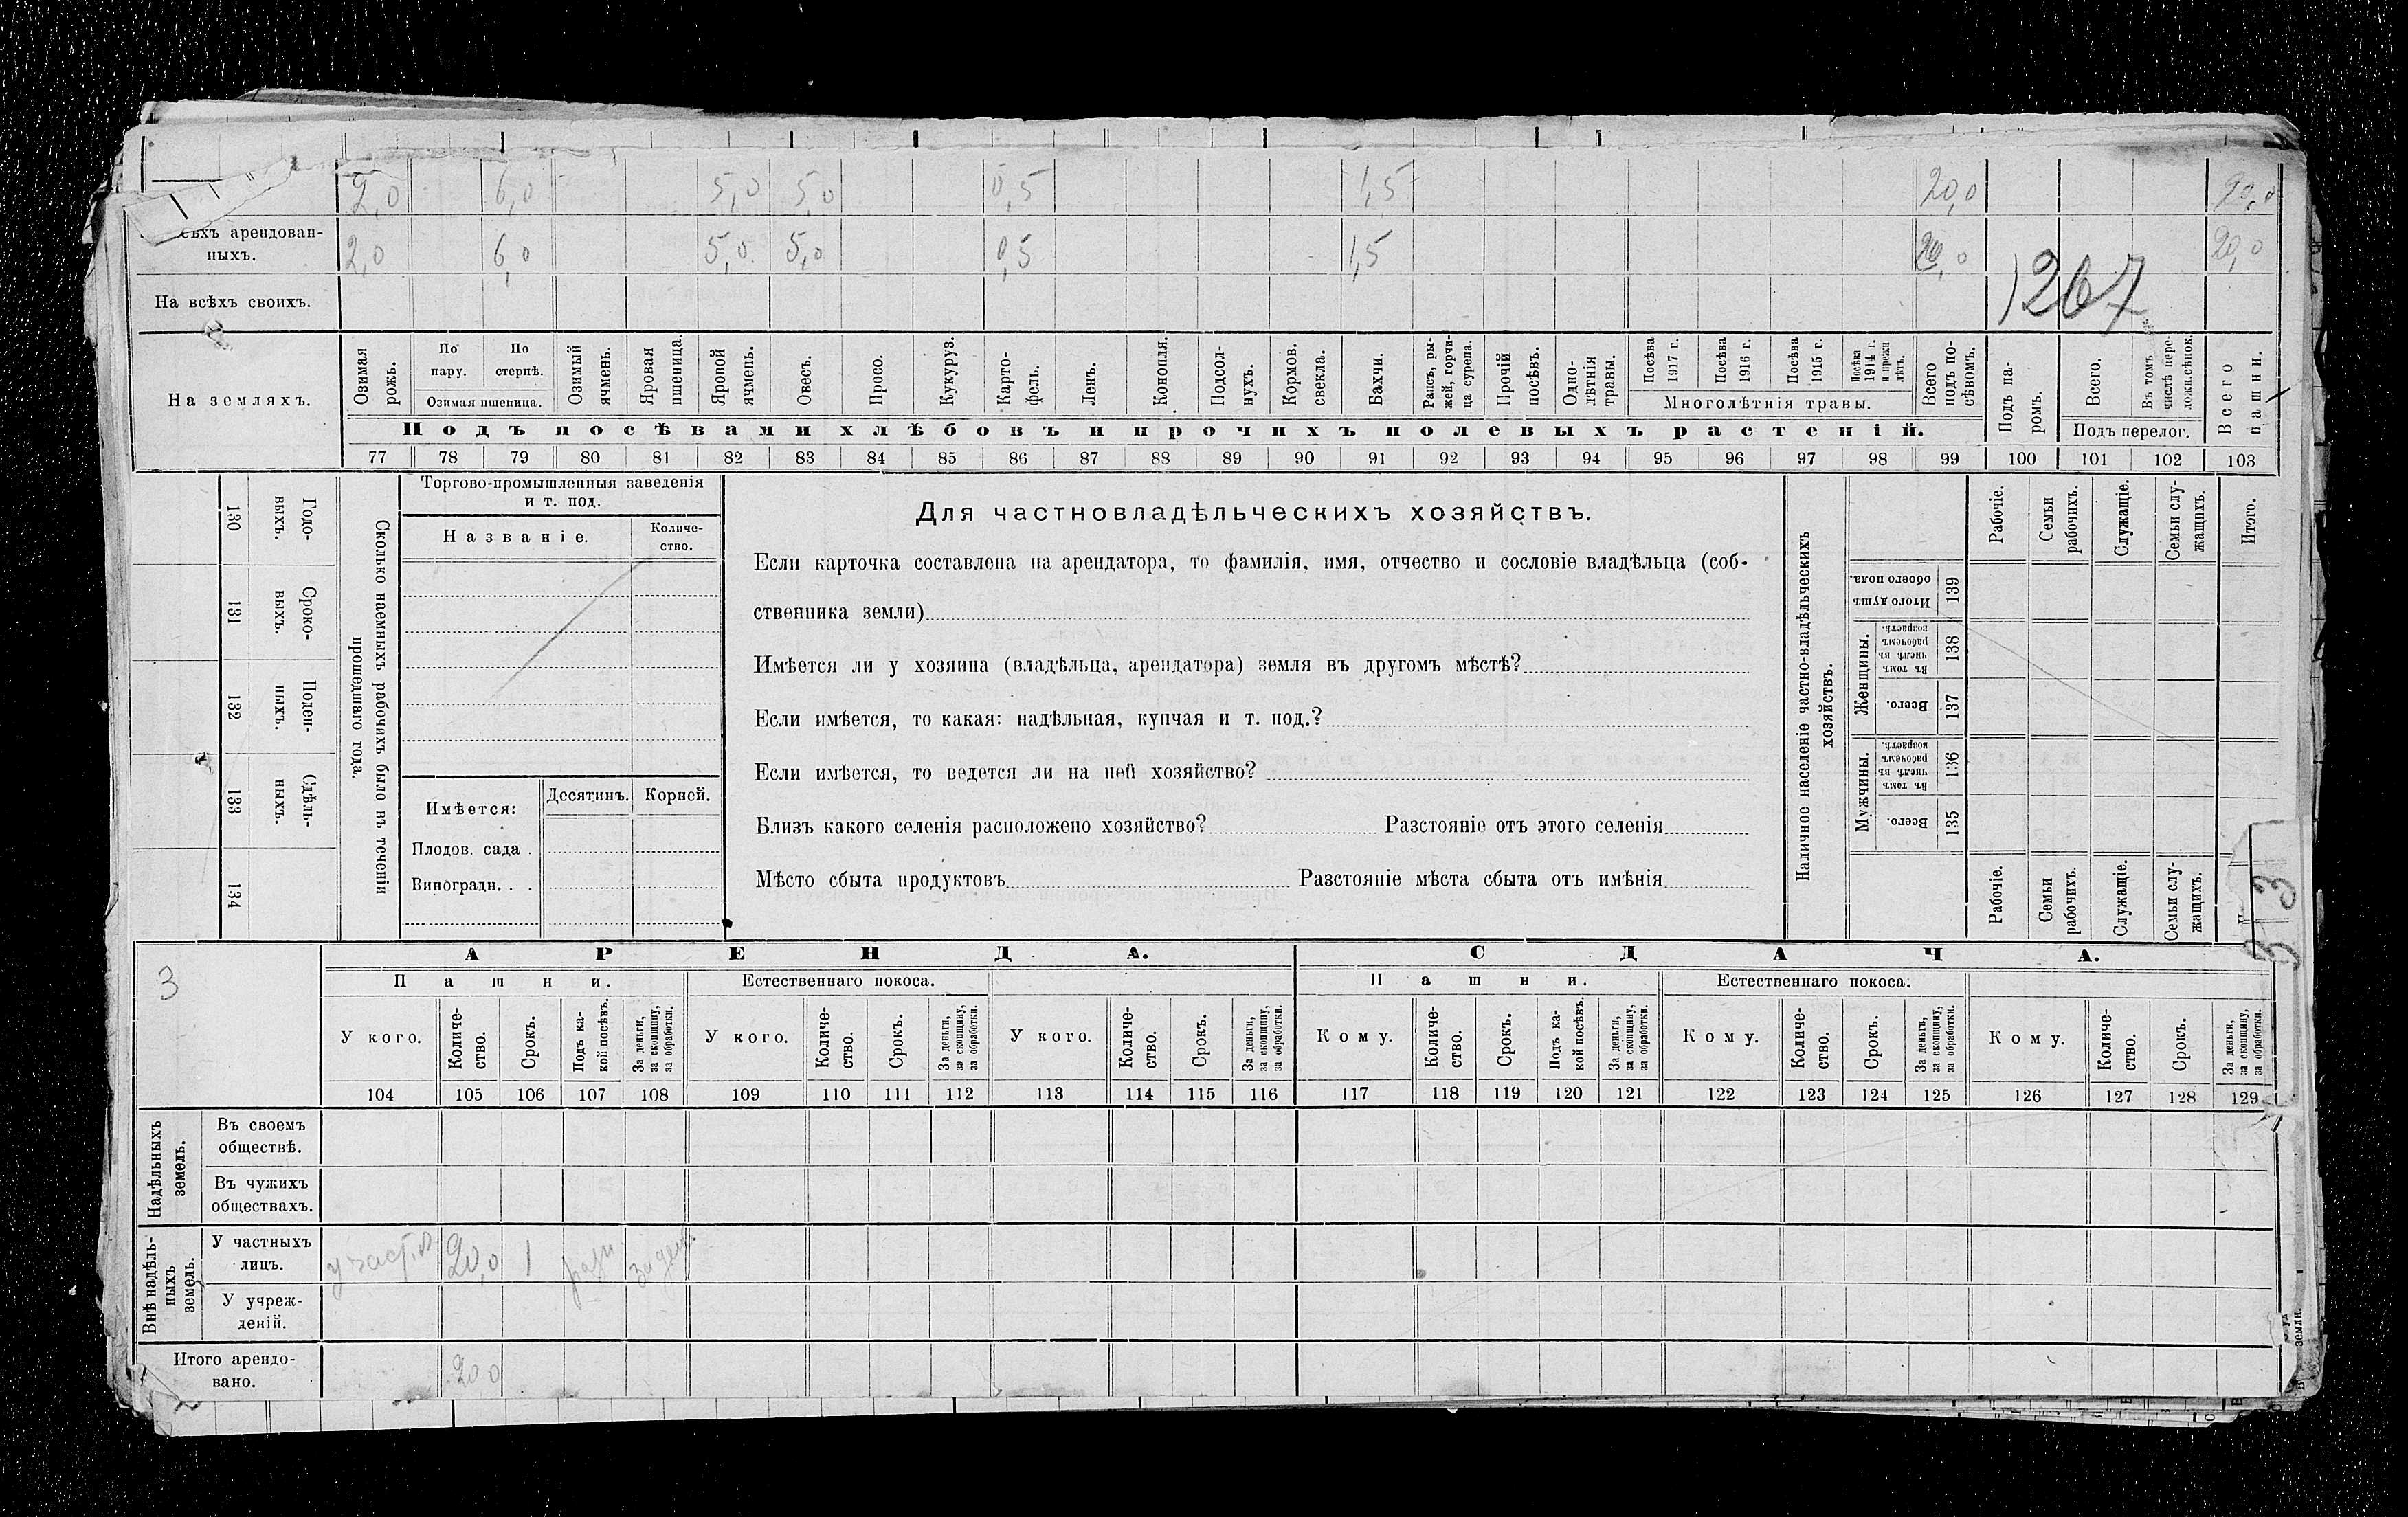 2,0 6,0 5,0 5,0 0,5 1,5 20,0
арендован-
ныхъ.
2,0 6,0 5,0 5,0 0,5 1,5 20,0 20,0
На всѣхъ своихъ.
1267
На земляхъ.
Озимая рожь.
По пару.
По стернѣ.
Озимая пшеница.
Озимый ячмень.
Яровая пшеница.
Яровой ячмень.
Овесъ.
Просо.
Кукуруз.
Карто-
фель.
Ленъ.
Конопля.
Подсол-
нухъ.
Кормов. свекла.
Бахчи.
Рапсъ, ры-
жей, горчи-
ца сурепа.
Прочій посѣвъ.
Одно-
лѣтнія травы.
Посѣва 1917 г.
Посѣва 1916 г.
Посѣва 1915 г.
Посѣва 1914 г. и прежн лѣтъ.
Многолѣтнія травы.
Всего подъ по-
сѣвомъ.
Подъ па-
ромъ.
Всего.
Въ томъ числѣ пере-
ложн.сѣнок.
Подъ перелог.
Всего пашни.
Подъ посѣвами хлѣбовъ и прочихъ полевыхъ растеній.
77 78 79 80 81 82 83 84 85 86 87 88 89 90 91 92 93 94 95 96 97 98 99 100 101 102 103
130 Годо-
выхъ.
131 Сроко-
выхъ.
132 Поден-
ныхъ.
133 Сдѣль-
ныхъ.
134
Сколько наемныхъ рабочихъ было въ теченіи
прошедшаго года.
Торгово-промышленныя заведенія
и т. под.
Названіе.
Количе-
ство.
Имѣется:
Десятинъ.
Корней.
Плодов. сада .
Виноградн. . .
Для частновладѣльческихъ хозяйствъ.
Если карточка составлена на арендатора, то фамилія, имя, отчество и сословіе владѣльца (соб-
ственника земли)
Имѣется ли у хозяина (владѣльца, арендатора) земля въ другомъ мѣстѣ?
Если имѣется, то какая: надѣльная, купчая и т. под.?
Если имѣется, то ведется ли на ней хозяйство?
Близъ какого селенія расположено хозяйство? Разстояніе отъ этого селенія
Мѣсто сбыта продуктовъ Разстояніе мѣста сбыта отъ имѣнія
Наличное населеніе частно-владѣльческихъ
хозяйствъ.
Рабочіе.
Семьи рабочихъ.
Служащіе.
Семьи слу-
жащихъ.
Итого.
Итого душъ обоего пола.
139
Женщины.
Въ томъ числѣ въ рабочемъ возрастѣ.
138
Всего.
137
Мужчины.
Въ томъ числѣ въ рабочемъ возрастѣ.
136
Всего.
135
Рабочіе.
Семьи рабочихъ.
Служащіе.
Семьи слу-
жащихъ.
313
3
АРЕНДА.
СДАЧА.
Пашни.
Естественнаго покоса.
Пашни.
Естественнаго покоса.
У кого.
Количе-
ство.
Срокъ.
Подъ ка-
кой посѣвъ.
За деньги, за скопщину, за обработки.
У кого.
Количе-
ство.
Срокъ.
За деньги, за скопщину, за обработки.
У кого.
Количе-
ство.
Срокъ.
За деньги, за скопщину, за обработки.
Кому.
Количе-
ство.
Срокъ.
Подъ ка-
кой посѣвъ.
За деньги, за скопщину, за обработки.
Кому.
Количе-
ство.
Срокъ.
За деньги, за скопщину, за обработки.
Кому.
Количе-
ство.
Срокъ.
За деньги, за скопщину, за обработки.
104 105 106 107 108 109 110 111 112 113 114 115 116 117 118 119 120 121 122 123 124 125 126 127 128 129
Надѣльныхъ земель.
Въ своемъ
обществѣ.
Въ чужихъ
обществахъ.
Внѣ надѣль-
ныхъ земель.
У частныхъ
лицъ.
20,0 1
У учреж-
деній.
Итого арендо-
вано.
20 0
земли.